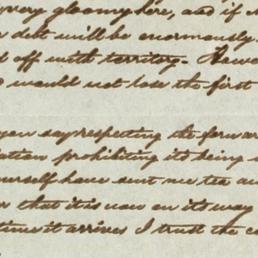 very gloomy here, and if
debt will be enormously
d off with territory. Howe
would not lose the first
you say respecting its forwar
ation prohibiting its being
ourself have sent me tea a
r that it is now on its way
time it arrives I trust the c